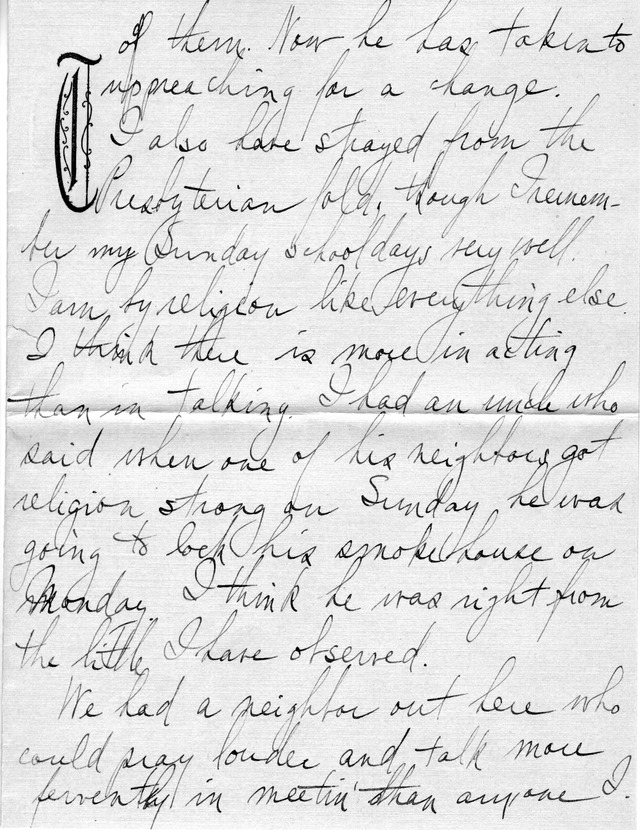 of them. Now he has taken to
up preaching for a change.
I also have strayed from the
Presbyterian fold, though I remem-
ber my Sunday school days very well.
I am by religion like everything else
I think there is more in acting
than in talking. I had an uncle who
said when one of his neighbors got
religion strong on Sunday he was
going to lock his smoke house on
Monday. I think he was right from
the little I have observed.
We had a neighbor out here who
could pray louder and talk more
fervently in meetin' than anyone I.